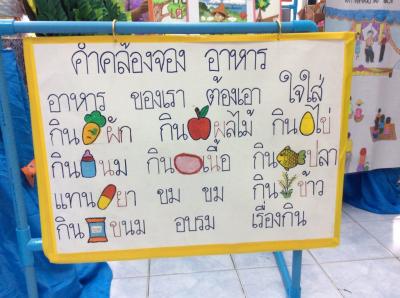 คำคล้องจอง อาหาร
อาหาร ของเรา ต้องเอา ใจใส่
กิน ผัก กิน ผลไม้ กิน ไข่
กิน นม กิน เนื้อ กิน ปลา
แทน ยา ขม ขม กิน ข้าว
กิน ขนม อบรม เรื่องกิน